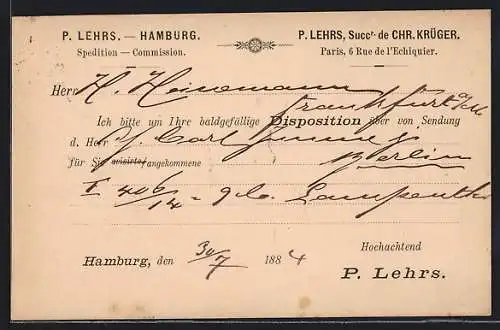 P. LEHRS. — HAMBURG.
Spedition — Commission.
P. LEHRS, Succr. de CHR. KRÜGER.
Paris, 6 Rue de l'Echiquier.
Herr H. Heinemann
Frankfurt a/M
Ich bitte um Ihre baldgefällige Disposition über von Sendung
d. Herr Carl
Berlin
für Sie avisirte/angekommene
406
Hamburg, den 30/7 1884
Hochachtend
P. Lehrs.